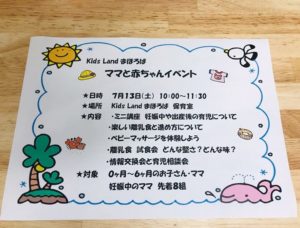 Kids Land まほろば
ママと赤ちゃんイベント
★日時　7月13日(土) 10:00～11:30
★場所　Kids Land まほろば 保育室
★内容　・ミニ講座 妊娠中や出産後の育児について
・楽しい離乳食と進め方について
・ベビーマッサージを体験しよう
・離乳食 試食会 どんな硬さ?どんな味?
・情報交換会と育児相談会
★対象　0ヶ月～6ヶ月のお子さん・ママ
妊娠中のママ 先着8組